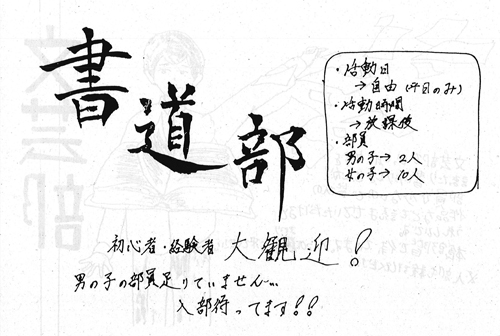 書道部
・活動日
→自由(平日のみ)
・活動時間
→放課後
・部員
男の子→2人
女の子→10人
初心者・経験者 大観迎!
男の子の部員足りていません…
入部待ってます!!
文芸部